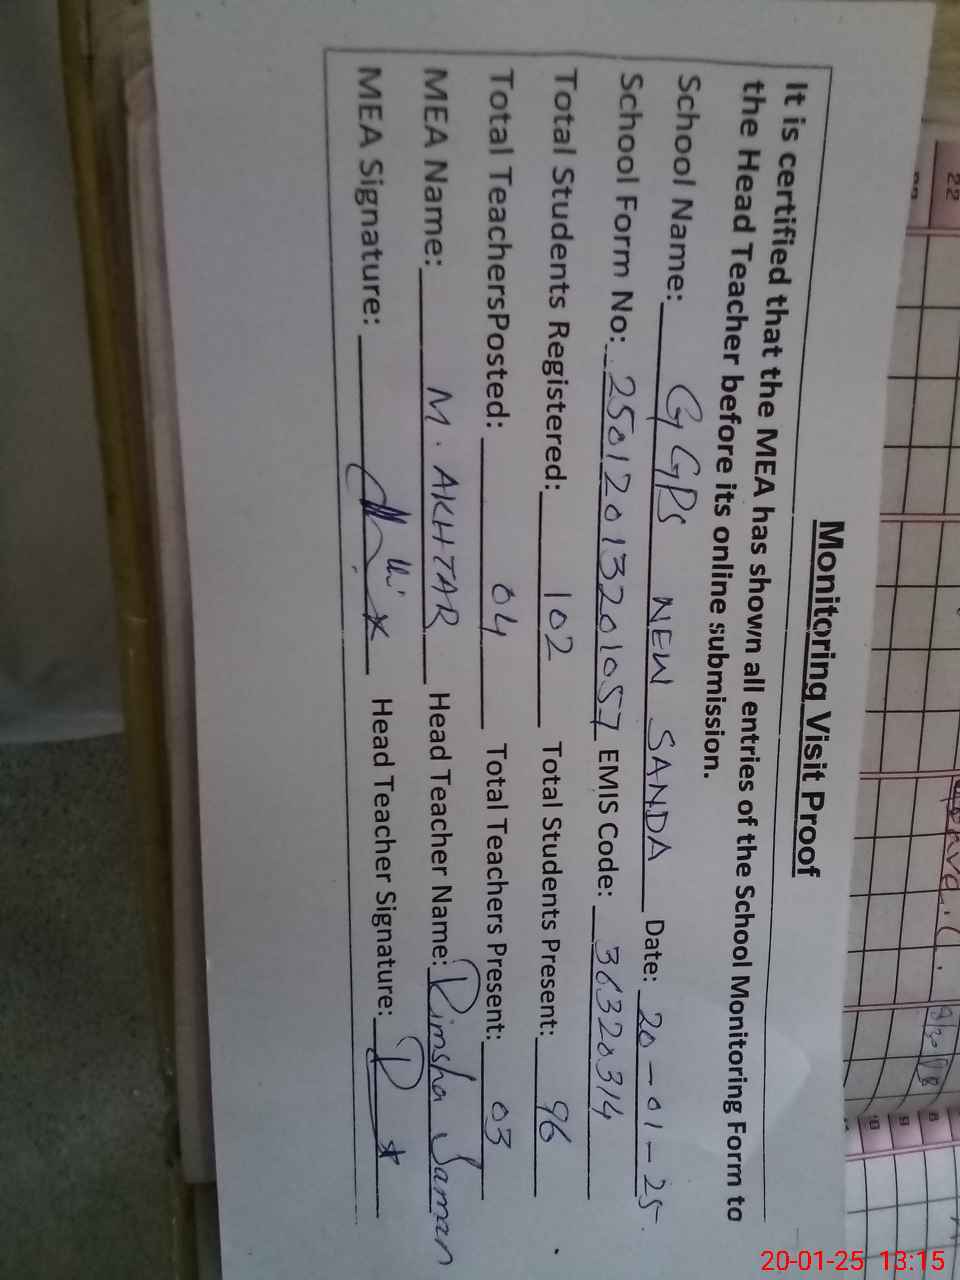 Monitoring Visit Proof
It is certified that the MEA has shown all entries of the School Monitoring Form to
the Head Teacher before its online submission.
School Name: GGPS NEW SANDA Date: 20-01-25.
School Form No: 25012013201057 EMIS Code: 36320314
Total Students Registered: 102 Total Students Present: 96
Total TeachersPosted: 04 Total Teachers Present: 03
MEA Name: M. AKHTAR Head Teacher Name: Rimsha Saman
MEA Signature: Head Teacher Signature:
22
8
9
10
20-01-25 13:15